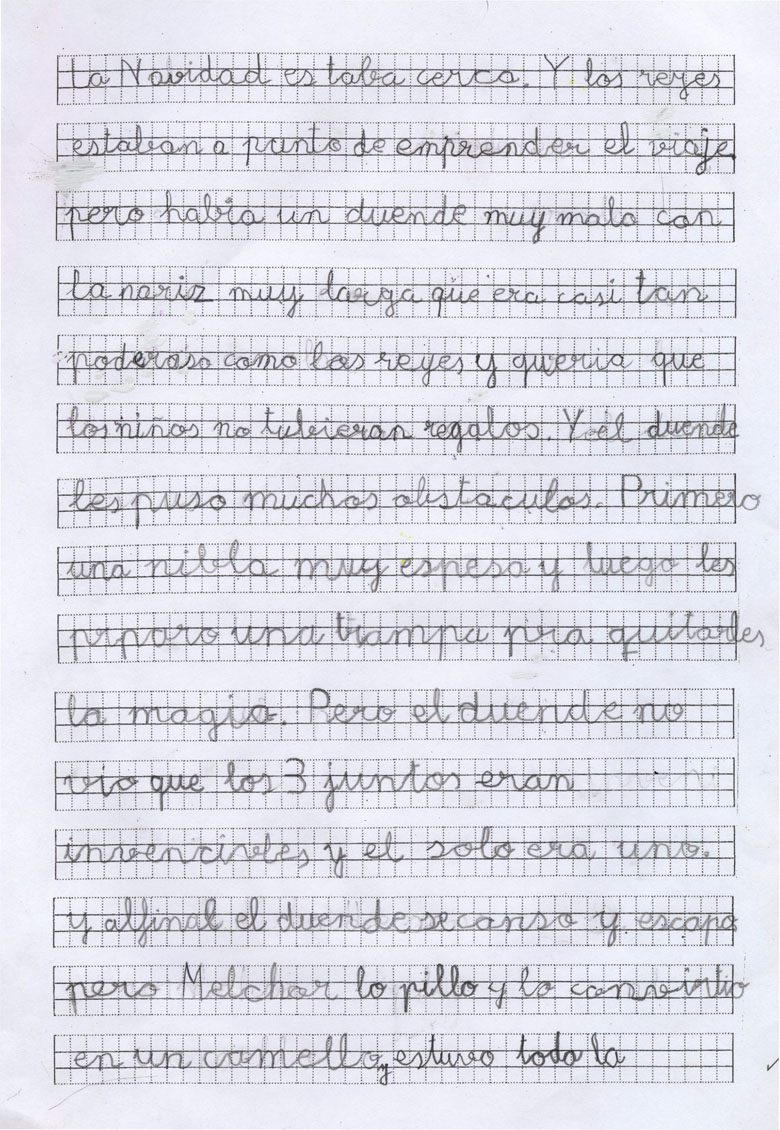 La Navidad estaba cerca. Y los reyes
estaban a punto de emprender el viaje
pero habia un duende muy malo con
la nariz muy larga que era casi tan
poderoso como los reyes y queria que
los niños no tubieran regalos. Y el duende
les puso muchos obstaculos. Primero
una nibla muy espesa y luego les
prparo una trampa pra quitarles
la magia. Pero el duende no
vio que los 3 juntos eran
invencivles y el solo era uno.
y alfinal el duende se canso y escapo
pero Melchor lo pillo y lo convirtio
en un camello y estuvo toda la